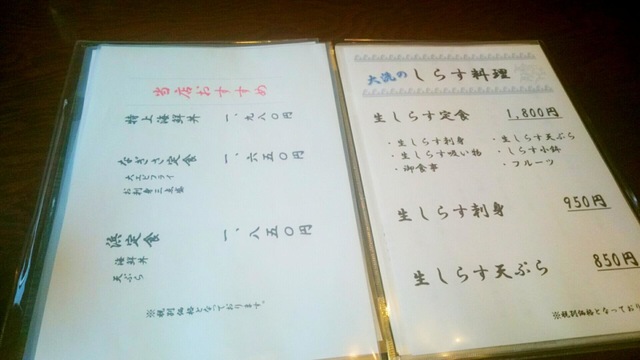 当店おすすめ
特上海鮮丼 一、九八〇円
なぎさ定食 一、六五〇円
大エビフライ
お刺身三点盛
浜定食 一、八五〇円
海鮮丼
天ぷら
※税別価格となっております。
大流のしらす料理
生しらす定食 1,800円
・生しらす刺身 ・生しらす天ぷら
・生しらす吸い物 ・しらす小鉢
・御食事 ・フルーツ
生しらす刺身 950円
生しらす天ぷら 850円
※税別価格となっており